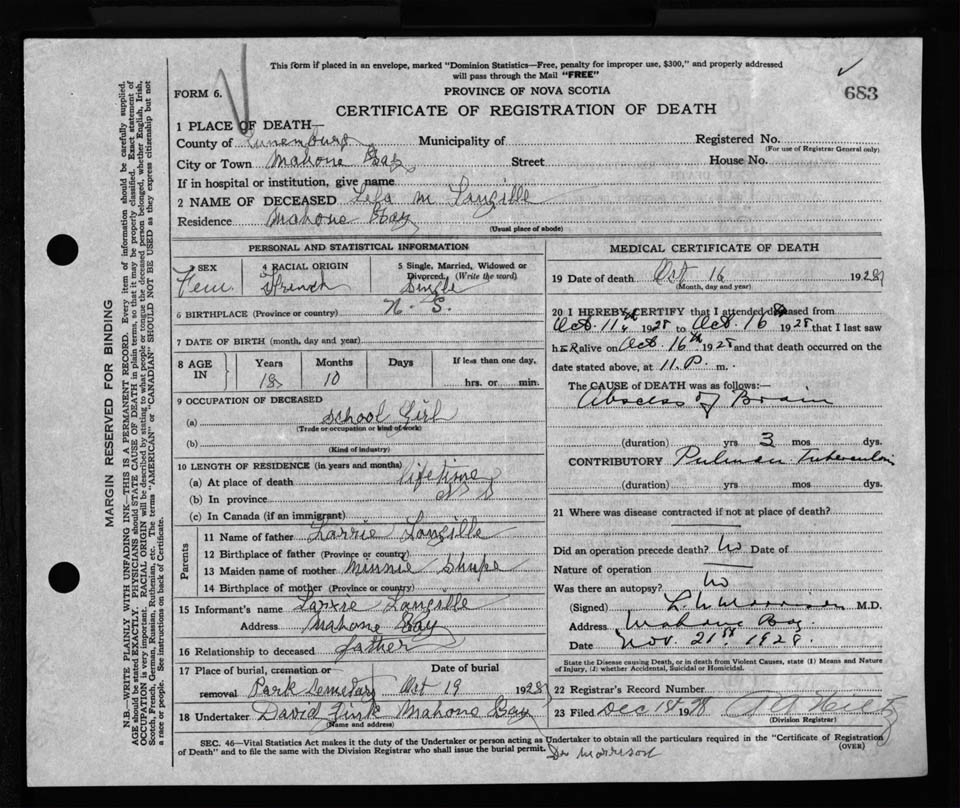 This form if placed in an envelope, marked "Dominion Statistics—Free, penalty for improper use, $300," and properly addressed
will pass through the Mail "FREE"
FORM 6.
PROVINCE OF NOVA SCOTIA
683
CERTIFICATE OF REGISTRATION OF DEATH
1 PLACE OF DEATH—
County of Lunenburg Municipality of Registered No.
(For use of Registrar General only)
City or Town Mahone Bay Street House No.
If in hospital or institution, give name
2 NAME OF DECEASED M Langille
Residence Mahone Bay
(Usual place of abode)
PERSONAL AND STATISTICAL INFORMATION
3 SEX 4 RACIAL ORIGIN 5 Single, Married, Widowed or
Divorced. (Write the word)
Fem. French Single
6 BIRTHPLACE (Province or country) N. S.
7 DATE OF BIRTH (month, day and year)
8 AGE IN Years Months Days If less than one day,
18 10 hrs. or min.
9 OCCUPATION OF DECEASED
(a) School Girl
(Trade or occupation or kind of work)
(b)
(Kind of industry)
10 LENGTH OF RESIDENCE (in years and months)
(a) At place of death lifetime
(b) In province N S
(c) In Canada (if an immigrant)
Parents
11 Name of father Langille
12 Birthplace of father (Province or country)
13 Maiden name of mother Minnie Shupe
14 Birthplace of mother (Province or country)
15 Informant's name Langille
Address Mahone Bay
16 Relationship to deceased father
17 Place of burial, cremation or removal Date of burial
Park Cemetary Oct 19 1928
18 Undertaker David Fink Mahone Bay
(Name and address)
MEDICAL CERTIFICATE OF DEATH
19 Date of death Oct 16 1928
(Month, day and year)
20 I HEREBY CERTIFY that I attended deceased from
Oct. 11th 1928 to Oct. 16 1928 that I last saw
hER alive on Oct. 16th 1928 and that death occurred on the
date stated above, at 11.P m.
The CAUSE of DEATH was as follows:—
Abscess of Brain
(duration) yrs 3 mos dys.
CONTRIBUTORY Pulmon. Tuberculosis
(duration) yrs mos dys.
21 Where was disease contracted if not at place of death?
Did an operation precede death? No Date of
Nature of operation
Was there an autopsy? No
(Signed) Morrison M.D.
Address Mahone Bay
Date Nov. 21st 1928.
State the Disease causing Death, or in death from Violent Causes, state (1) Means and Nature
of Injury, (2) whether Accidental, Suicidal or Homicidal.
22 Registrar's Record Number
23 Filed Dec 1st 1928
(Division Registrar)
SEC. 46—Vital Statistics Act makes it the duty of the Undertaker or person acting as Undertaker to obtain all the particulars required in the "Certificate of Registration
of Death" and to file the same with the Division Registrar who shall issue the burial permit.
(OVER)
Dr Morrison
MARGIN RESERVED FOR BINDING
N.B.—WRITE PLAINLY WITH UNFADING INK—THIS IS A PERMANENT RECORD. Every item of information should be carefully supplied.
AGE should be stated EXACTLY. PHYSICIANS should STATE CAUSE OF DEATH in plain terms, so that it may be properly classified. Exact statement of
OCCUPATION is very important. RACIAL ORIGIN will be described by stating to what people or tongue the deceased person belonged, whether English, Irish,
Scotch, French, German, Russian, Ruthenian, etc. The terms "AMERICAN" or "CANADIAN" SHOULD NOT BE USED as they express citizenship but not
a race or people. See instructions on back of Certificate.